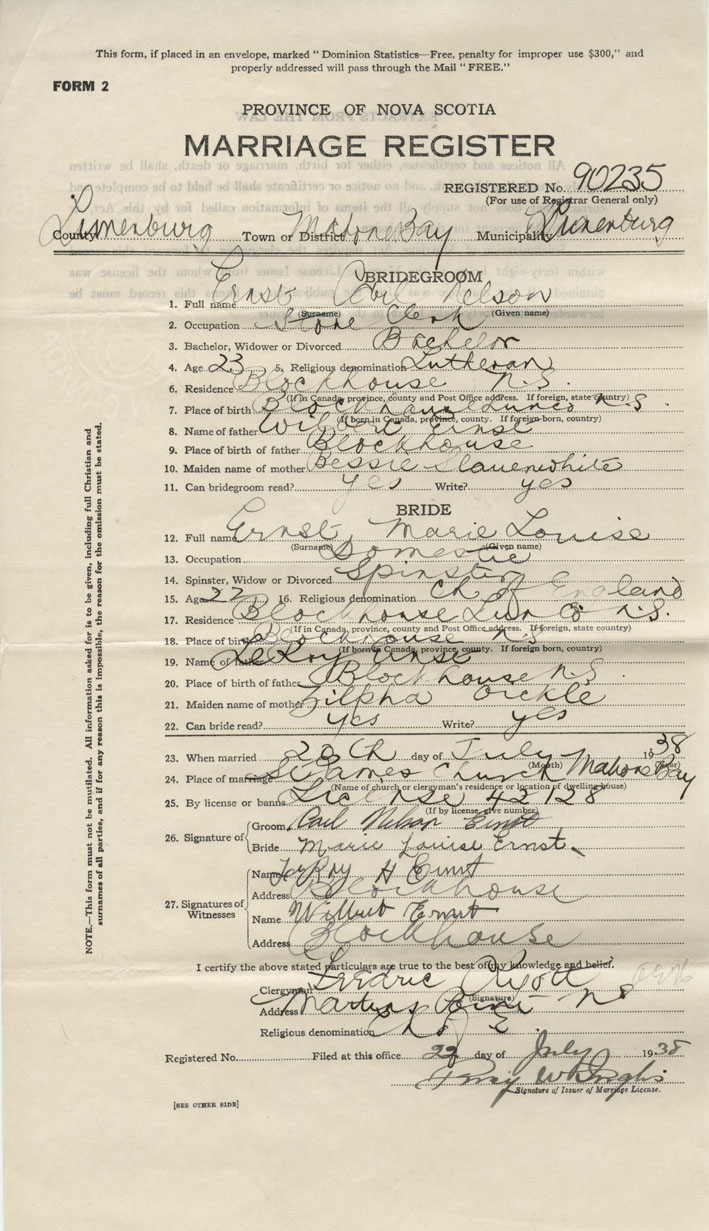 This form, if placed in an envelope, marked "Dominion Statistics—Free, penalty for improper use $300," and
properly addressed will pass through the Mail "FREE."
FORM 2
PROVINCE OF NOVA SCOTIA
MARRIAGE REGISTER
REGISTERED No. 90235
(For use of Registrar General only)
County Lunenburg Town or District Mahone Bay Municipality Lunenburg
BRIDEGROOM
1. Full name Ernst Nelson
(Surname) (Given name)
2. Occupation Store Clerk
3. Bachelor, Widower or Divorced Bachelor
4. Age 23 5. Religious denomination Lutheran
6. Residence Blockhouse N.S.
(If in Canada, province, county and Post Office address. If foreign, state country)
7. Place of birth Blockhouse Lun Co N.S.
(If born in Canada, province, county. If foreign born, country)
8. Name of father Wilbert Ernst
9. Place of birth of father Blockhouse
10. Maiden name of mother Bessie Slauenwhite
11. Can bridegroom read? yes Write? yes
BRIDE
12. Full name Ernst, Marie Louise
(Surname) (Given name)
13. Occupation Domestic
14. Spinster, Widow or Divorced Spinster
15. Age 22 16. Religious denomination Ch of England
17. Residence Blockhouse Lun Co N.S.
(If in Canada, province, county and Post Office address. If foreign, state country)
18. Place of birth Blockhouse N.S.
(If born in Canada, province, county. If foreign born, country)
19. Name of father LeRoy Ernst
20. Place of birth of father Blockhouse N.S.
21. Maiden name of mother Zilpha Eickle
22. Can bride read? yes Write? yes
23. When married 20th day of July 1938
(Month) (Year)
24. Place of marriage St James Church Mahone Bay
(Name of church or clergyman's residence or location of dwelling house)
25. By license or banns License 42128
(If by license, give number)
26. Signature of
Groom Nelson Ernst
Bride Marie Louise Ernst
27. Signatures of Witnesses
Name LeRoy H Ernst
Address Blockhouse
Name Wilbert Ernst
Address Blockhouse
I certify the above stated particulars are true to the best of my knowledge and belief.
Clergyman Ryott
(Signature)
Address Martins Point N S
Religious denomination Ch of E
Registered No. Filed at this office 22 day of July 1938
Signature of Issuer of Marriage License.
[SEE OTHER SIDE]
NOTE.—This form must not be mutilated. All information asked for is to be given, including full Christian and
surnames of all parties, and if for any reason this is impossible, the reason for the omission must be stated.